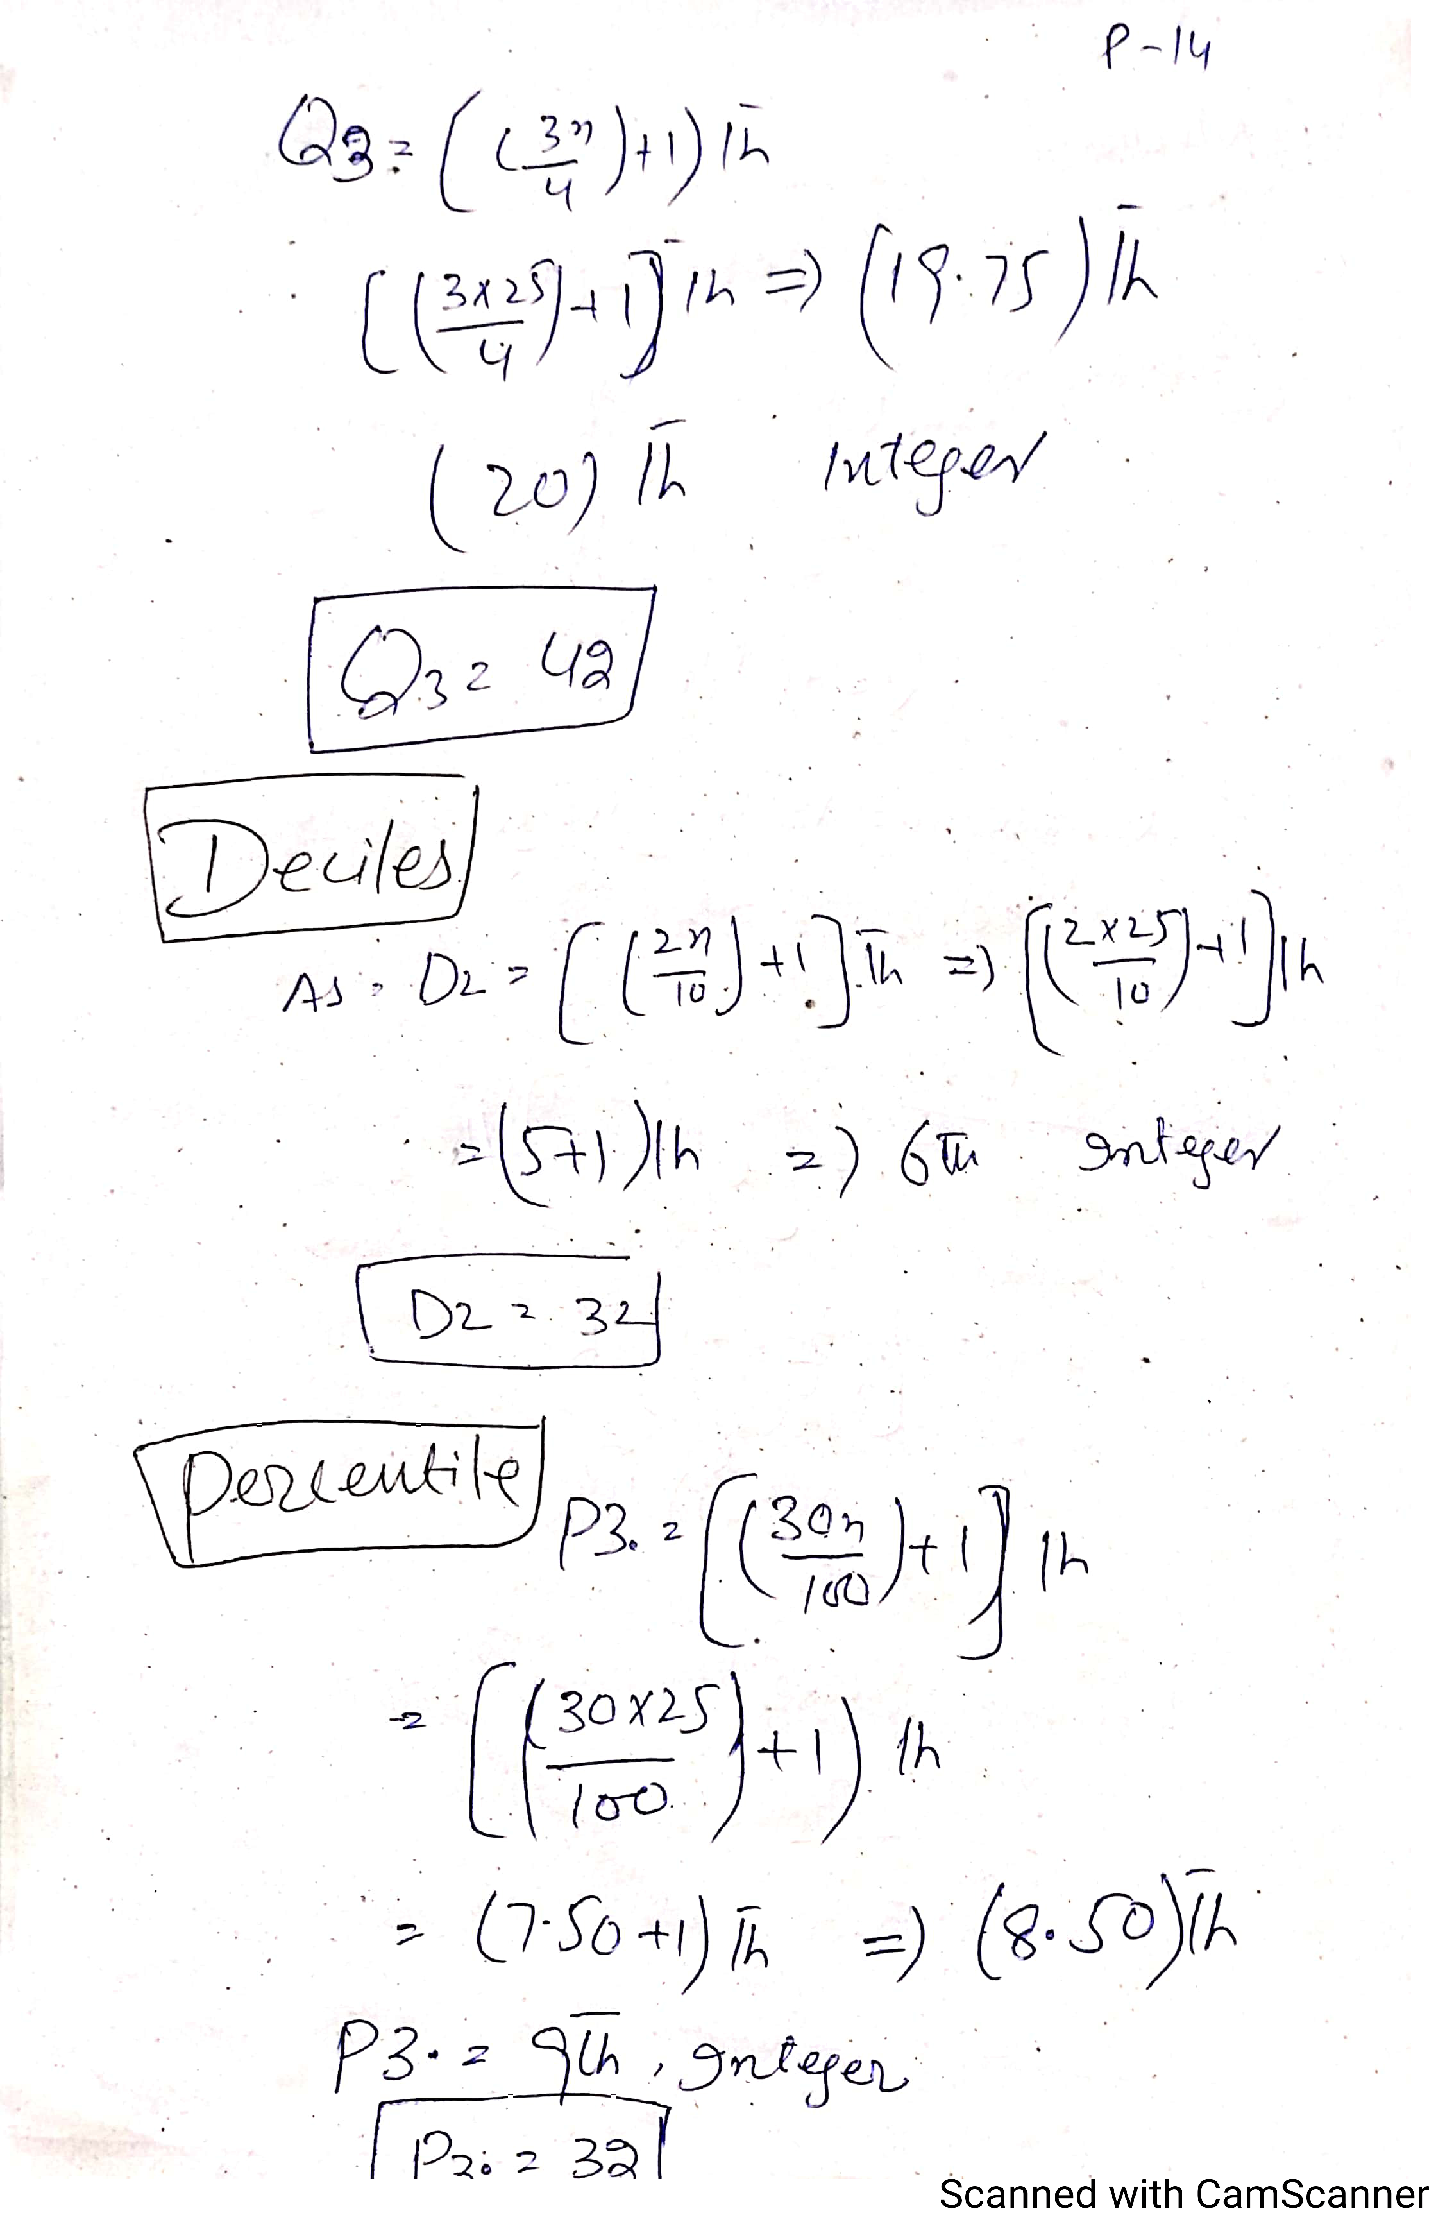 P-14
Q3 = ((3n/4)+1)th
[(3x25/4)+1]th => (19.75)th
(20)th Integer
Q3 = 42
Deciles
As. D2 = [(2n/10)+1]th => [(2x25/10)+1]th
= (5+1)th => 6th Integer
D2 = 32
Percentile
P30 = [(30n/100)+1]th
= [(30x25/100)+1)th
= (7.50+1)th => (8.50)th
P30 = 9th, Integer
P30 = 32
Scanned with CamScanner